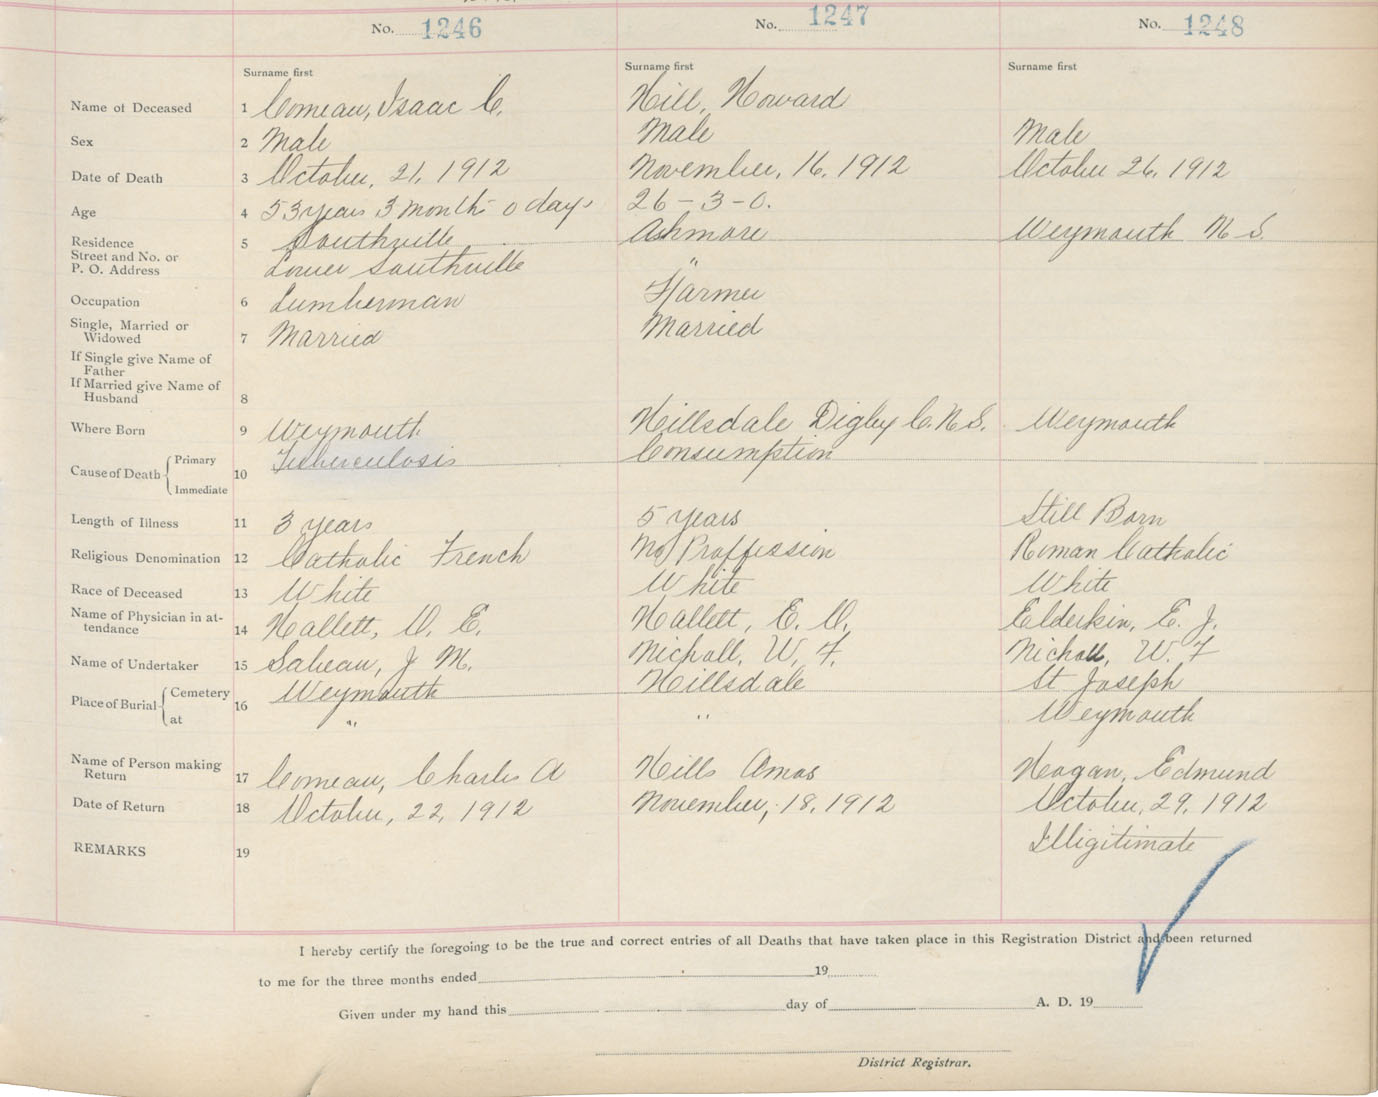 No. 1246
No. 1247
No. 1248
Surname first
Surname first
Surname first
Name of Deceased 1 Comeau, Isaac C. Hill, Howard
Sex 2 Male Male Male
Date of Death 3 October, 21, 1912 November, 16, 1912 October 26, 1912
Age 4 53 years 3 months 0 days 26 - 3 - 0.
Residence 5 Southville Ashmore Weymouth N S.
Street and No. or
P. O. Address Lower Southville "
Occupation 6 Lumberman Farmer
Single, Married or
Widowed 7 Married Married
If Single give Name of
Father
If Married give Name of
Husband 8
Where Born 9 Weymouth Hillsdale Digby C. N. S. Weymouth
Cause of Death { Primary 10 Tuberculosis Consumption
Immediate
Length of Illness 11 3 years 5 years Still Born
Religious Denomination 12 Catholic French No Proffession Roman Catholic
Race of Deceased 13 White White White
Name of Physician in at-
tendance 14 Hallett, O. E. Hallett, E. O. Elderkin, E. J.
Name of Undertaker 15 Sabean, J M. Nichall, W. F. Nichall, W. F
Place of Burial { Cemetery 16 Weymouth Hillsdale St Joseph
at " " Weymouth
Name of Person making
Return 17 Comeau, Charles A Hills Amos Hogan, Edmund
Date of Return 18 October, 22, 1912 November, 18, 1912 October, 29, 1912
REMARKS 19 Illigitimate
I hereby certify the foregoing to be the true and correct entries of all Deaths that have taken place in this Registration District and been returned
to me for the three months ended 19
Given under my hand this day of A. D. 19
District Registrar.